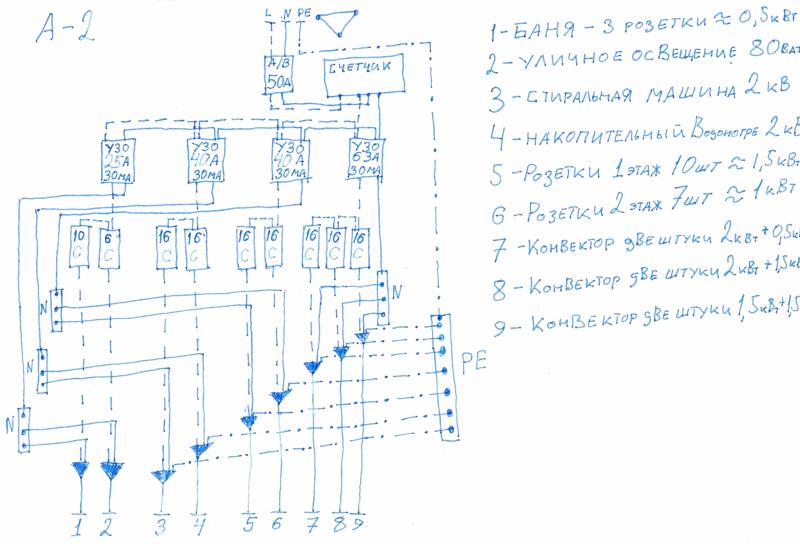 А-2
L N PE
А/В
50А
СЧЕТЧИК
УЗО
25А
30МА
УЗО
40А
30МА
УЗО
40А
30МА
УЗО
63А
30МА
10
С
6
С
16
С
16
С
16
С
16
С
16
С
16
С
16
С
N
N
N
N
PE
1 2 3 4 5 6 7 8 9
1-БАНЯ-3 РОЗЕТКИ ≈ 0,5кВт
2-УЛИЧНОЕ ОСВЕЩЕНИЕ 80Ват
3-СТИРАЛЬНАЯ МАШИНА 2кВ
4-НАКОПИТЕЛЬНЫЙ Водоногре 2кВ
5-РОЗЕТКИ 1ЭТАЖ 10шт ≈ 1,5кВт
6-РОЗЕТКИ 2ЭТАЖ 7шт ≈ 1кВт
7-КОНВЕКТОР ДВЕ ШТУКИ 2кВт+0,5к
8-КОНВЕКТОР ДВЕ ШТУКИ 2кВт+1,5к
9-КОНВЕКТОР ДВЕ ШТУКИ 1,5кВт+1,5